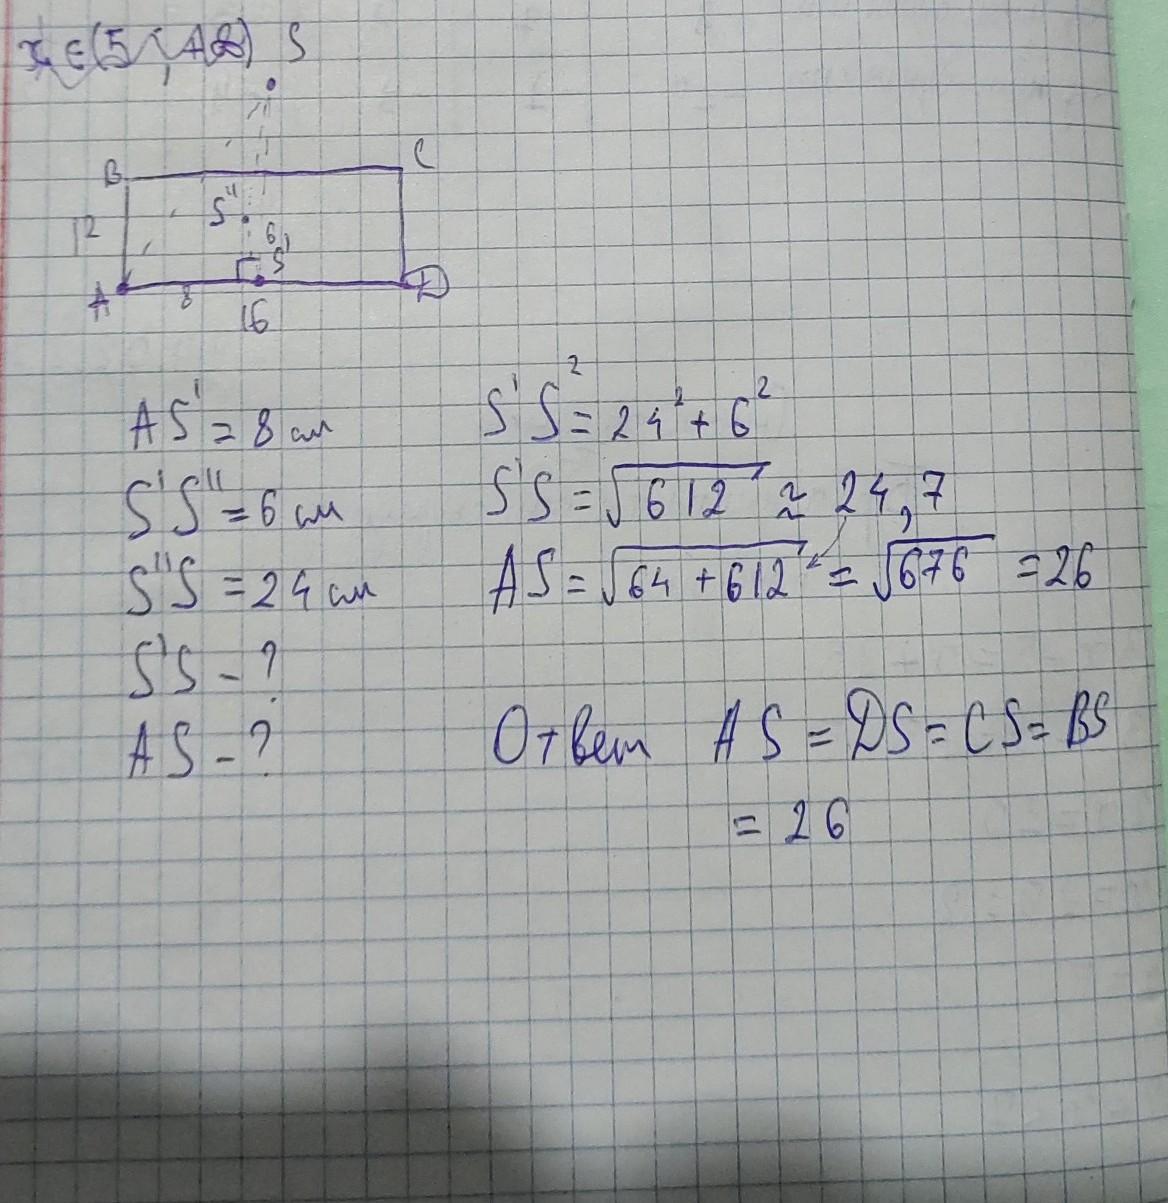 S
B
C
12
S"
6
S'
A
8
D
16
AS' = 8 см
S'S" = 6 см
S"S = 24 см
S'S - ?
AS - ?
S'S² = 24² + 6²
S'S = √612 ≈ 24,7
AS = √64 + 612 = √676 = 26
Ответ AS = DS = CS = BS
= 26